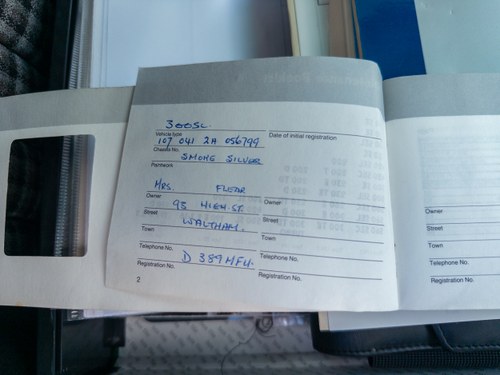 300SL
Vehicle type
Date of initial registration
107 041 2A 056799
Chassis No.
SMOKE SILVER
Paintwork
MRS. FLEAR
Owner
Owner
98 HIGH ST.
Street
Street
WALTHAM.
Town
Town
Telephone No.
Telephone No.
D 389 MFU.
Registration No.
Registration No.
2
Owner
Street
Town
Telephone No.
Registration No.